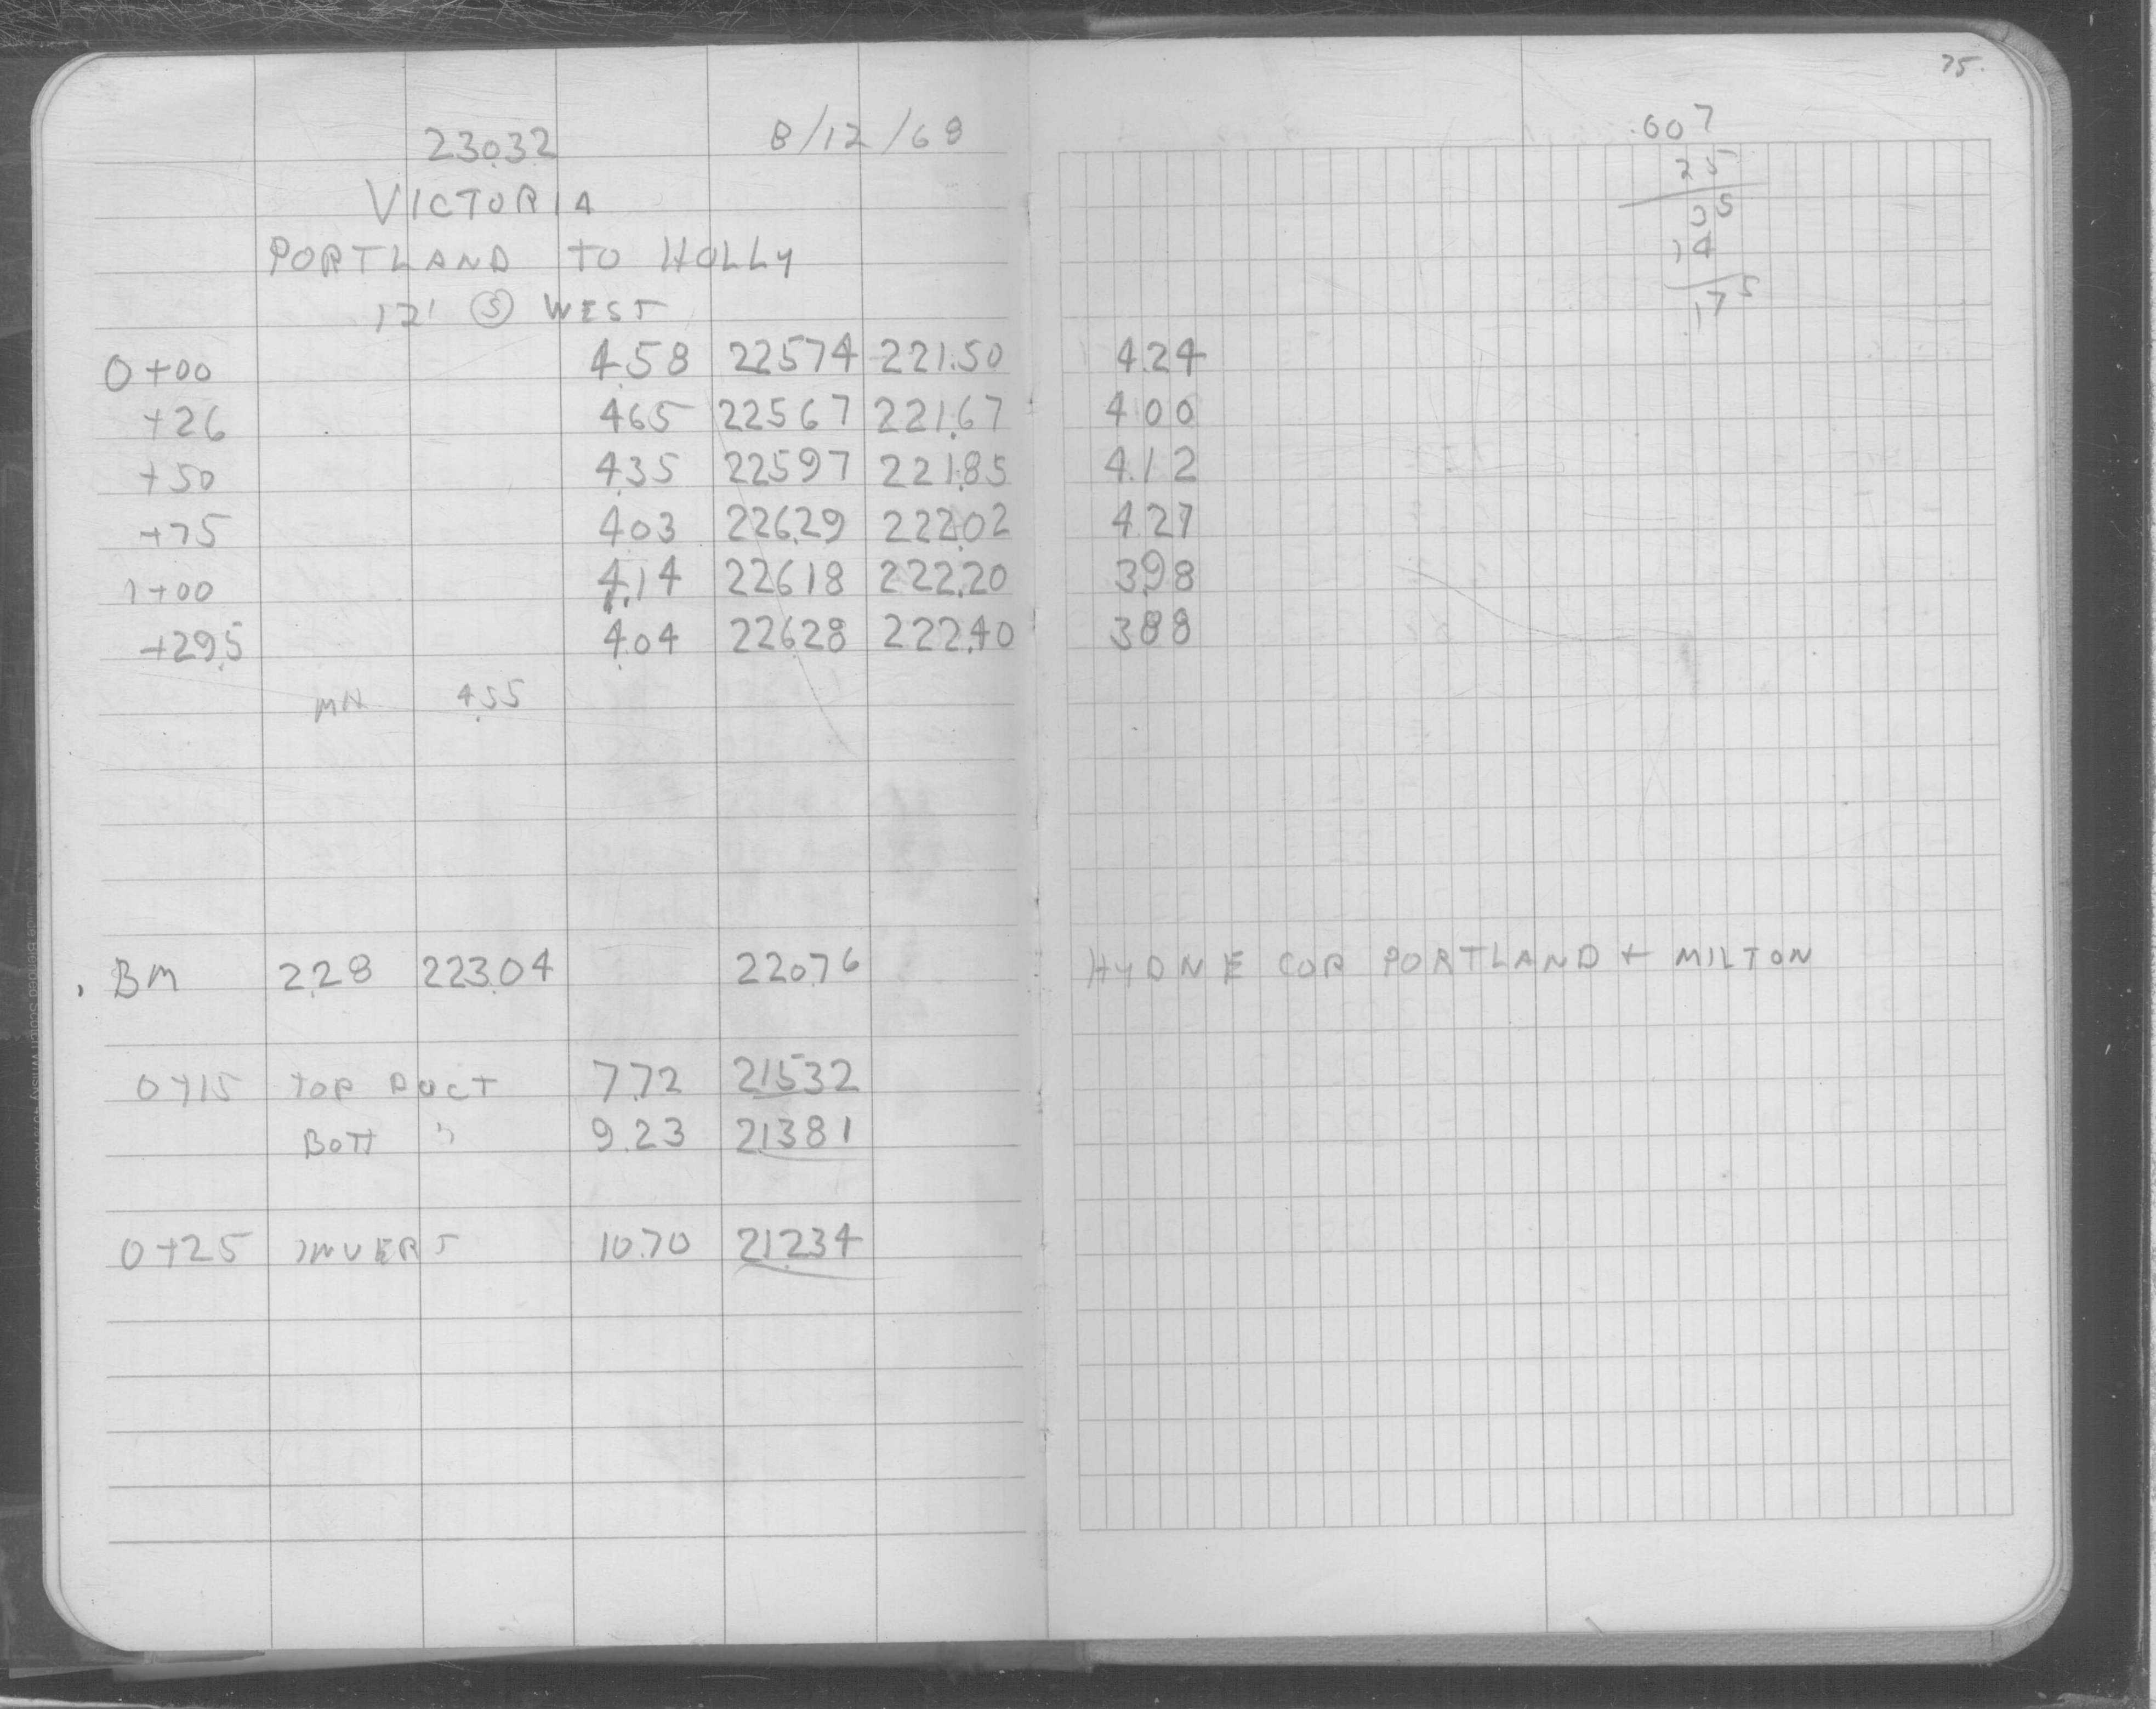 75.
230.32 8/12/68
VICTORIA
PORTLAND TO HOLLY
12' Ⓢ WEST
0+00 4.58 225.74 221.50 4.24
+26 4.65 225.67 221.67 4.00
+50 4.35 225.97 221.85 4.12
+75 4.03 226.29 222.02 4.27
1+00 4.14 226.18 222.20 3.98
+29.5 4.04 226.28 222.40 3.88
MH 4.55
.607
25
35
14
.175
BM 2.28 223.04 220.76 HYD N E COR PORTLAND + MILTON
0+15 TOP DUCT 7.72 215.32
BOTT " 9.23 213.81
0+25 INVERT 10.70 212.34